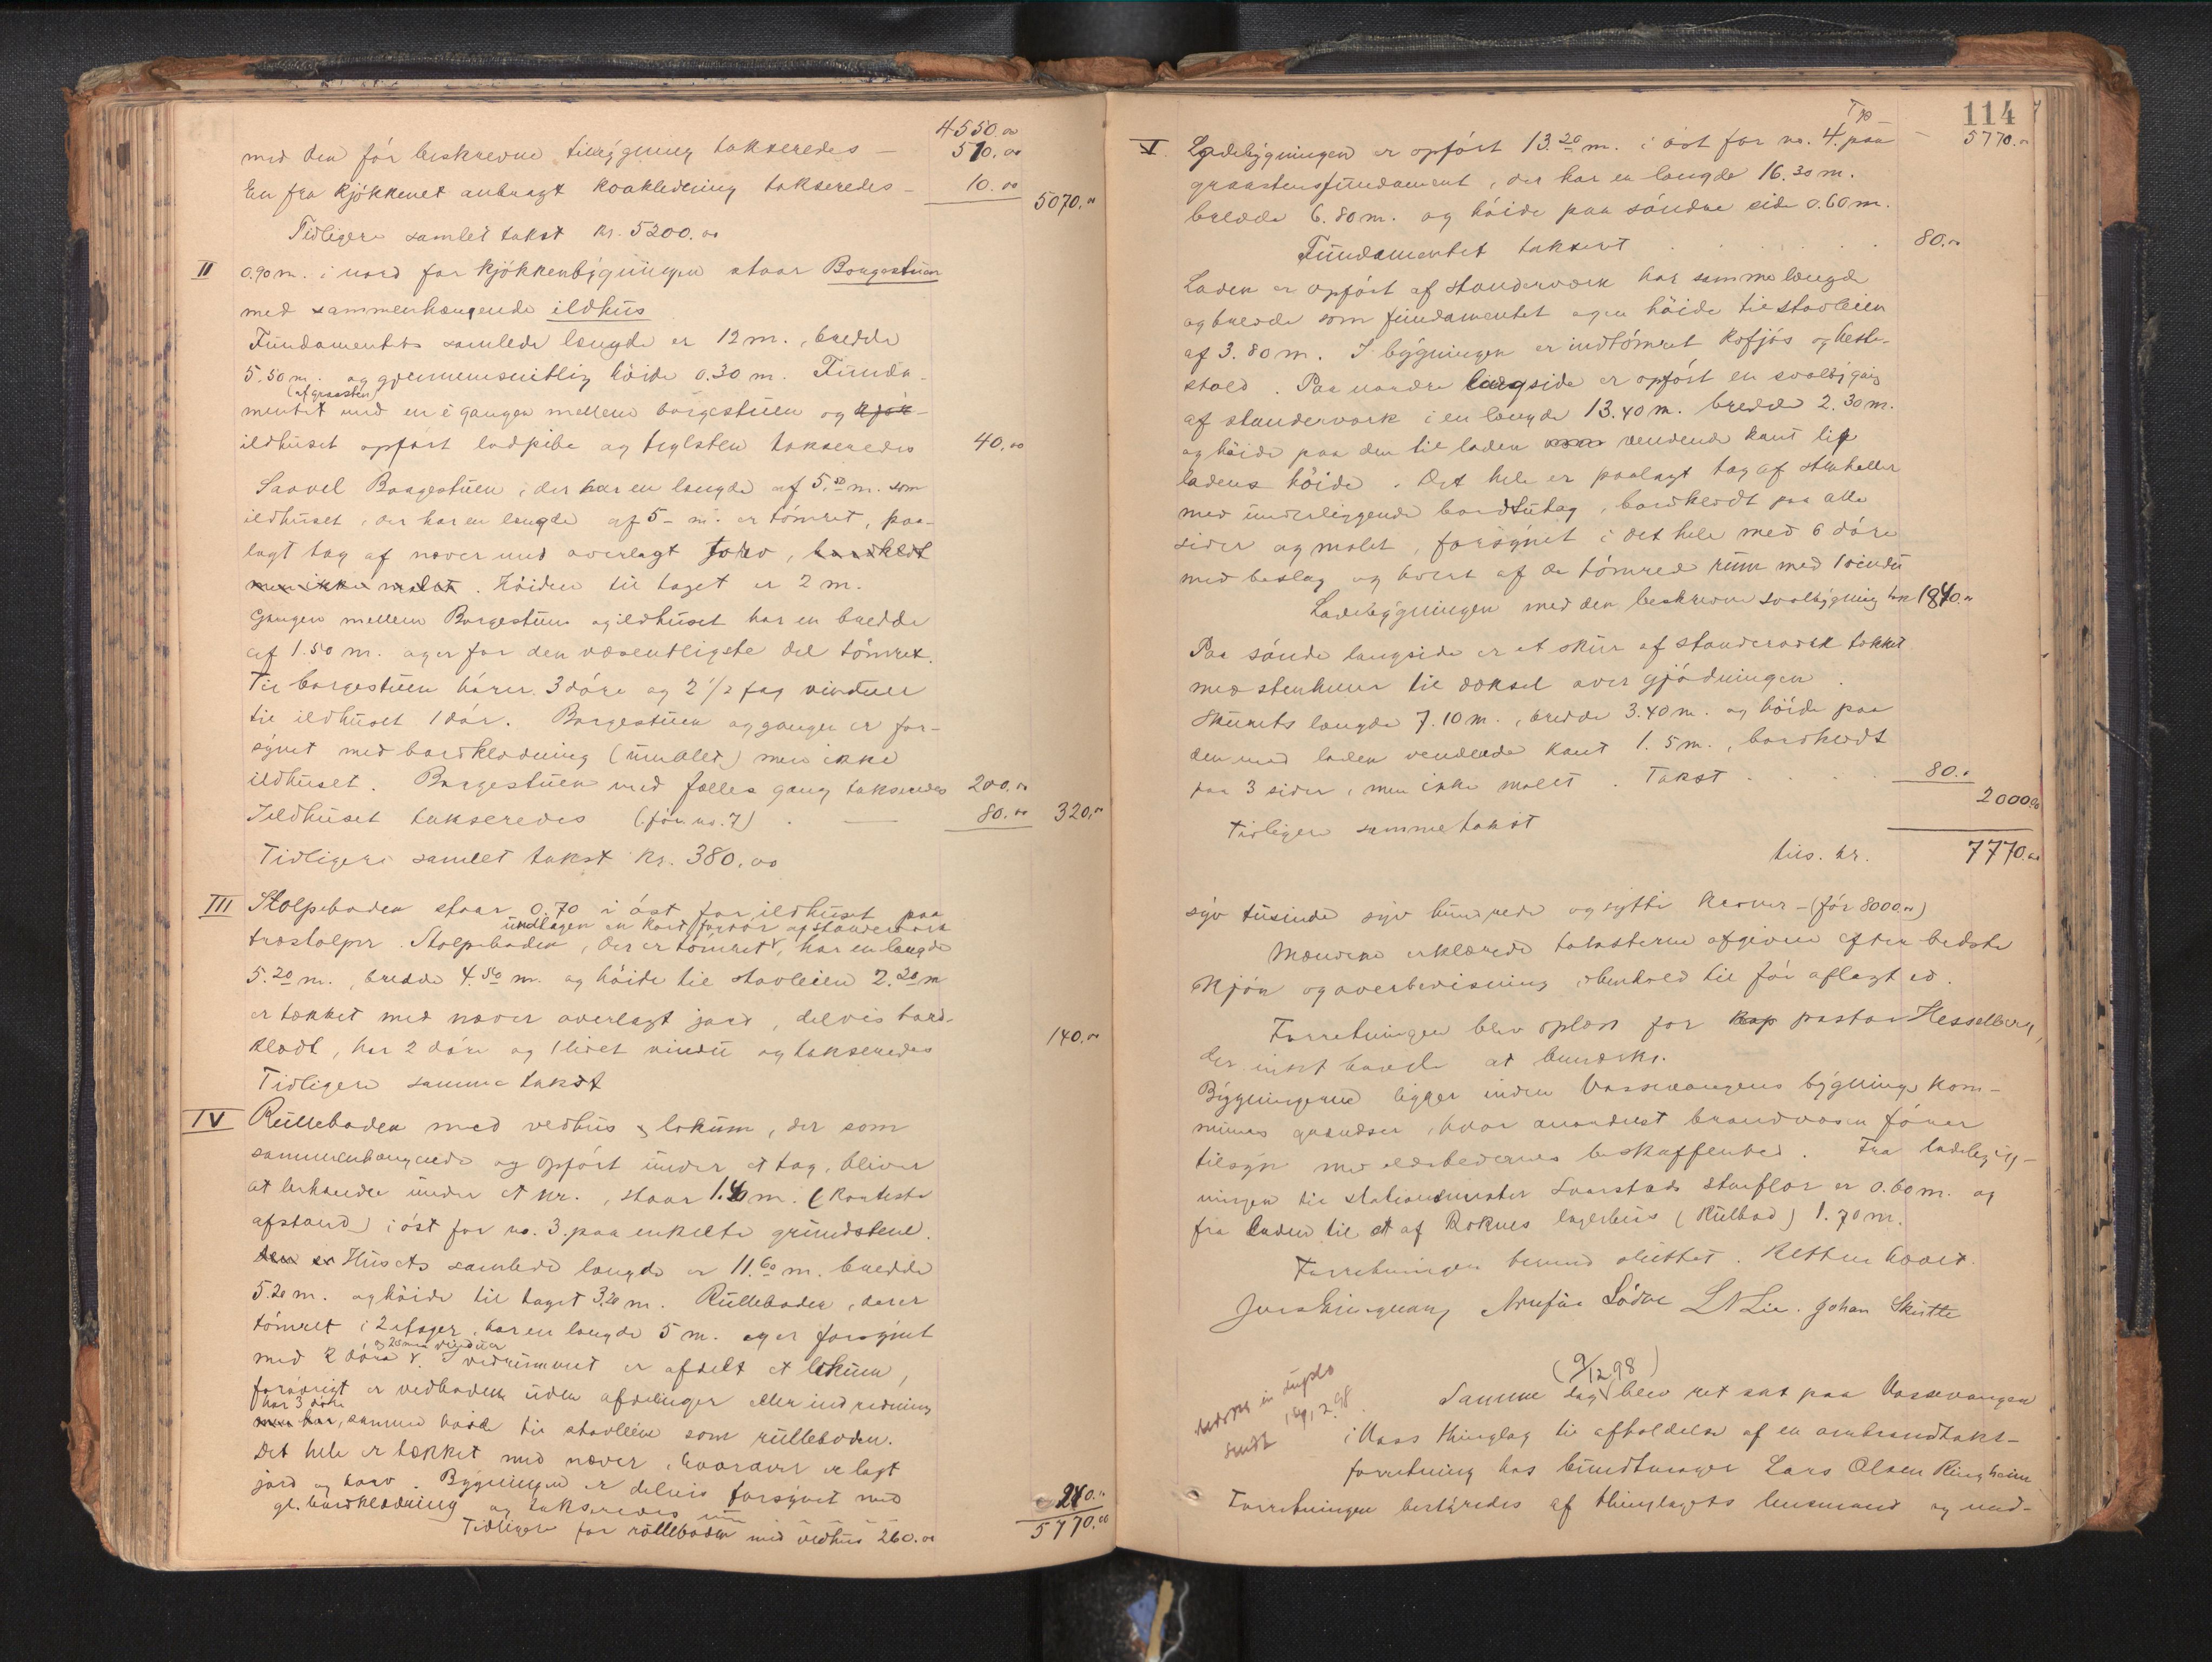 4550.00
med den før beskrevne tilbygning takseredes — 510.00
En fra kjøkkenet anbragt koakledning takseredes — 10.00
5070.00
Tidligere samlet takst kr. 5200.00
II 0.90 m. i nord for kjøkkenbygningen staar Borgestuen
med sammenhængende ildhus
Fundamentets samlede længde er 12 m., bredde
5.50 m. og gjennemsnitlig høide 0.30 m. Funda-
(af graasten)
mentet med en i gangen mellem borgestuen og kjøk-
ildhuset opført ladpibe og teglsten takseredes 40.00
Saavel Borgestuen, der har en længde af 5.50 m. som
ildhuset, der har en længde af 5 - m. er tømret, paa-
lagt tag af næver med overlagt torv, bordklædt
men ikke malet. Høiden til taget er 2 m.
Gangen mellem Borgestuen og ildhuset har en bredde
af 1.50 m. og er for den væsentligste del tømret.
Til borgestuen hører 3 døre og 2 1/2 fag vinduer
til ildhuset 1 dør. Borgestuen og gangen er for-
synet med bordklædning (umalet) men ikke
ildhuset. Borgestuen med fælles gang takseredes 200.00
Ildhuset takseredes (før no. 7) — 80.00 320.00
Tidligere samlet takst kr. 380.00
III Stolpeboden staar 0.70 i øst for ildhuset paa
undtagen en kort for dør af standerværk
træstolper. Stolpeboden, der er tømret, har en længde
5.20 m., bredde 4.50 m. og høide til stavleien 2.20 m
er tækket med næver overlagt jord, delvis bord-
klædt, har 2 døre og 1 lidet vindu og takseredes 140.00
Tidligere samme takst
IV Rulleboden med vedhus & lokum, der som
sammenhængende og opført under et tag, bliver
at behandle under et nr., staar 1.40 m. (korteste
afstand) i øst for no. 3. paa enkelte grundstene.
den er Husets samlede længde er 11.60 m. bredde
5.20 m. og høide til taget 3.20 m. Rulleboden, der er
tømret i 2 etager, har en længde 5 m. og er forsynet
og 2 små vinduer
med 2 døre. I vedrummet er afdelt et lokum,
forøvrigt er vedboden uden afdelinger eller indredning
har 3 døre
men har, samme høide til stavleien som rulleboden.
Det hele er tækket med næver, hvorover er lagt
jord og torv. Bygningen er delvis forsynet med
gl. bordklædning og takseredes 240.00
Tidligere for rulleboden med vedhus 260.00 5770.00
114
Tp —
V Ladebygningen er opført 13.20 m. i øst for no. 4. paa — 5770.00
graastensfundament, der har en længde 16.30 m.
bredde 6.80 m. og høide paa søndre side 0.60 m.
Fundamentet taksert . . . . . 80.00
Laden er opført af standerværk har samme længde
og bredde som fundamentet og en høide til stavleien
af 3.80 m. I bygningen er indtømret kofjøs og heste-
stald. Paa nordre langside er opført en svalbygning
af standerværk i en længde 13.40 m. bredde 2.30 m.
og høide paa den til laden vendende kant lig
ladens høide. Det hele er paalagt tag af stenheller
med underliggende bordtutag, bordklædt paa alle
sider og malet, forsynet i det hele med 6 døre
med beslag og hvert af de tømrede rum med 1 vindu
Ladebygningen med den beskrevne svalbygning tax 1840.00
Paa søndre langside er et skur af standerværk tækket
med stenheller til dæksel over gjødningen.
Skurets længde 7.10 m., bredde 3.40 m. og høide paa
den mod laden vendende kant 1.5 m., bordklædt
paa 3 sider, men ikke malet. Takst . . . 80.00
2000.00
Tidligere samme takst
tils. kr. 7770.00
syv tusinde syv hundrede og sytti kroner — (før 8000.00)
Mændene erklærede taksterne afgivne efter bedste
skjøn og overbevisning i henhold til før aflagt ed.
Forretningen blev oplæst for kap pastor Hesselberg,
der intet havde at bemærke.
Bygningerne ligger inden Vossevangens bygningskom-
munes grændser, hvor anordnet brandvæsen fører
tilsyn med ildstedernes beskaffenhed. Fra ladebyg-
ningen til stationsmester Svarstads staflør er 0.60 m. og
fra laden til et af Roknes lagerhus (Kulbod) 1.70 m.
Forretningen dermed sluttet. Retten hævet.
Arnfin Lødve L N Lie. Johan Skutle
(9/12 98)
Samme dag blev ret sat paa Vossevangen
i Voss thinglag til afholdelse af en ombrandtakst-
forretning hos bundtmager Lars Olsen Ringheim
Forretningen bestyredes af thinglagets lensmand og med-
in duplo
sendt